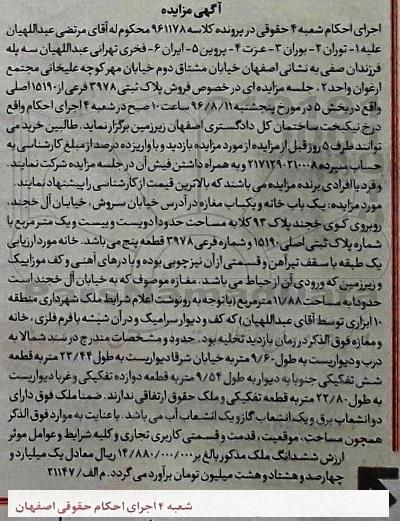 آگهی مزایده
اجرای احکام شعبه ۴ حقوقی در پرونده کلاسه ۹۶۱۱۷۸ محکوم له آقای مرتضی عبداللهیان
علیه ۱- توران ۲- بوران ۳- عزت ۴- پروین ۵- ایران ۶- فخری تهرانی عبداللهیان سه پله
فرزندان صفی به نشانی اصفهان خیابان مشتاق دوم خیابان مهر کوچه علیخانی مجتمع
ارغوان واحد ۲، جلسه مزایده ای در خصوص فروش پلاک ثبتی ۳۹۷۸ فرعی از ۱۵۱۹۰ اصلی
واقع در بخش ۵ در مورخ پنجشنبه ۹۶/۸/۱۱ ساعت ۱۰ صبح در شعبه ۴ اجرای احکام واقع
در خ نیکبخت ساختمان کل دادگستری اصفهان زیرزمین برگزار نماید. طالبین خرید می
توانند ظرف ۵ روز قبل از مزایده از مورد مزایده بازدید و با واریز ده درصد از مبلغ کارشناسی به
حساب سپرده ۲۱۷۱۲۹۰۲۱۰۰۰۸ و به همراه داشتن فیش آن در جلسه مزایده شرکت نمایند.
و فرد یا افرادی برنده مزایده می باشند که بالاترین قیمت از کارشناسی را پیشنهاد نمایند.
مورد مزایده: یک باب خانه و یکباب مغازه در آدرس خیابان سروش، خیابان آل خجند،
روبروی کوی خجند پلاک ۹۳ کلا به مساحت حدودا دویست و بیست و یک متر مربع با
شماره پلاک ثبتی اصلی ۱۵۱۹۰ و شماره فرعی ۳۹۷۸ قطعه پنج می باشد. خانه مورد ارزیابی
یک طبقه با سقف تیرآهن و قسمتی از آن نیز چوبی بوده و با درهای آهنی و کف موزاییک
و زیرزمین که ورودی آن از حیاط می باشد. مغازه موصوف که به خیابان آل خجند است
حدودا به مساحت ۱۱/۸۸ مترمربع (با توجه به رونوشت اعلام شرایط ملک شهرداری منطقه
۱۰ ابزاری توسط آقای عبداللهیان) که کف و دیوار سرامیک و درآن شیشه با فرم فلزی، خانه
و مغازه فوق الذکر در زمان بازدید تخلیه بود. حدود و مشخصات مندرج در سند شمالا به
درب و دیواریست به طول ۹/۶۰ متر به خیابان شرقا دیواریست به طول ۲۳/۴۴ متر به قطعه
شش تفکیکی جنوبا به دیوار به طول ۹/۵۴ متر به قطعه دوازده تفکیکی و غربا دیواریست
به طول ۲۲/۸۰ متر به قطعه تفکیکی و ملک حقوق ارتفاقی ندارند. ضمنا ملک فوق دارای
دو انشعاب برق و یک انشعاب گاز و یک انشعاب آب می باشد. با عنایت به موارد فوق الذکر
همچون مساحت، موقعیت، قدمت و قسمتی کاربری تجاری و کلیه شرایط و عوامل موثر
ارزش ششدانگ ملک مذکور بالغ بر ۱۴/۸۸۰/۰۰۰/۰۰۰ ریال معادل یک میلیارد و
چهارصد و هشتاد و هشت میلیون تومان برآورد می گردد. م الف/ ۲۱۱۴۷
شعبه ۴ اجرای احکام حقوقی اصفهان